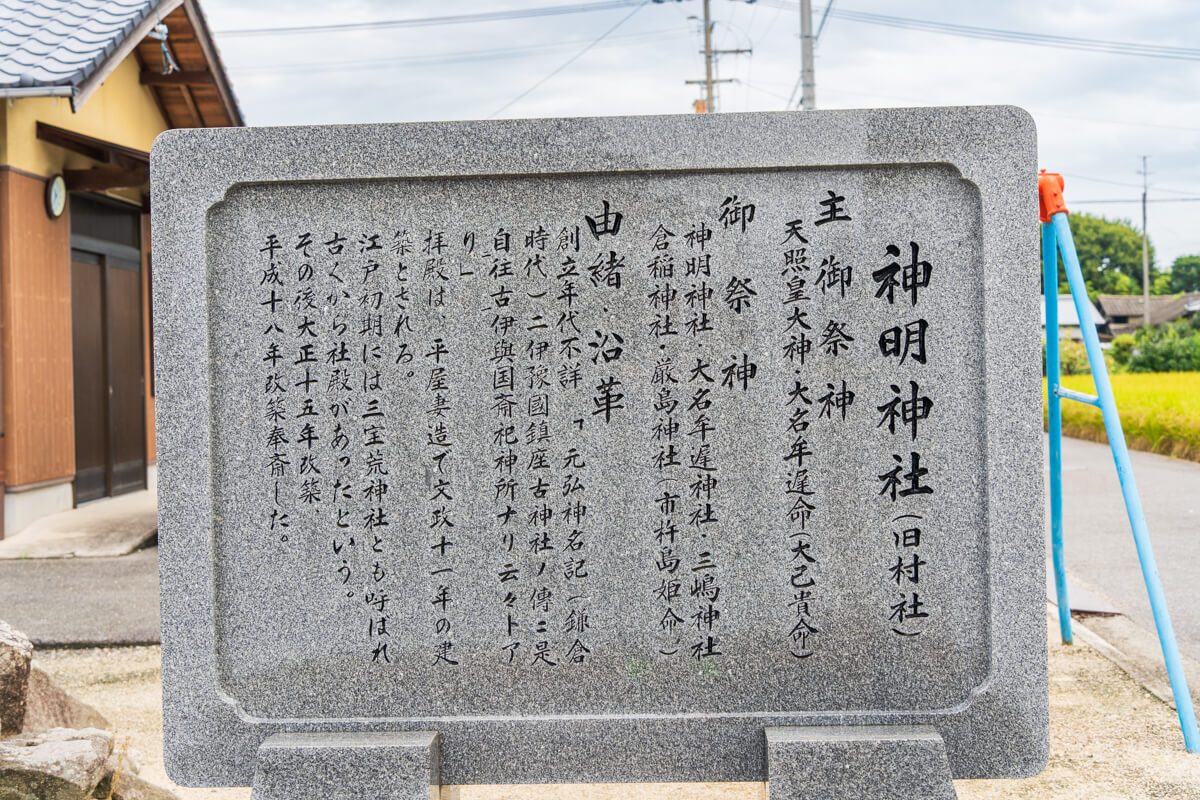 神明神社(旧村社)
主御祭神
天照皇大神・大名牟遅命(大己貴命)
御祭神
神明神社・大名牟遅神社・三嶋神社
倉稲神社・厳島神社(市杵島姫命)
由緒・沿革
創立年代不詳「元弘神名記(鎌倉
時代)二伊豫國鎮座古神社ノ傳ニ是
自往古伊與国斎祀神所ナリ云々トア
リ」
拝殿は、平屋妻造で文政十一年の建
築とされる。
江戸初期には三宝荒神社とも呼ばれ
古くから社殿があったという。
その後大正十五年改築、
平成十八年改築奉斎した。